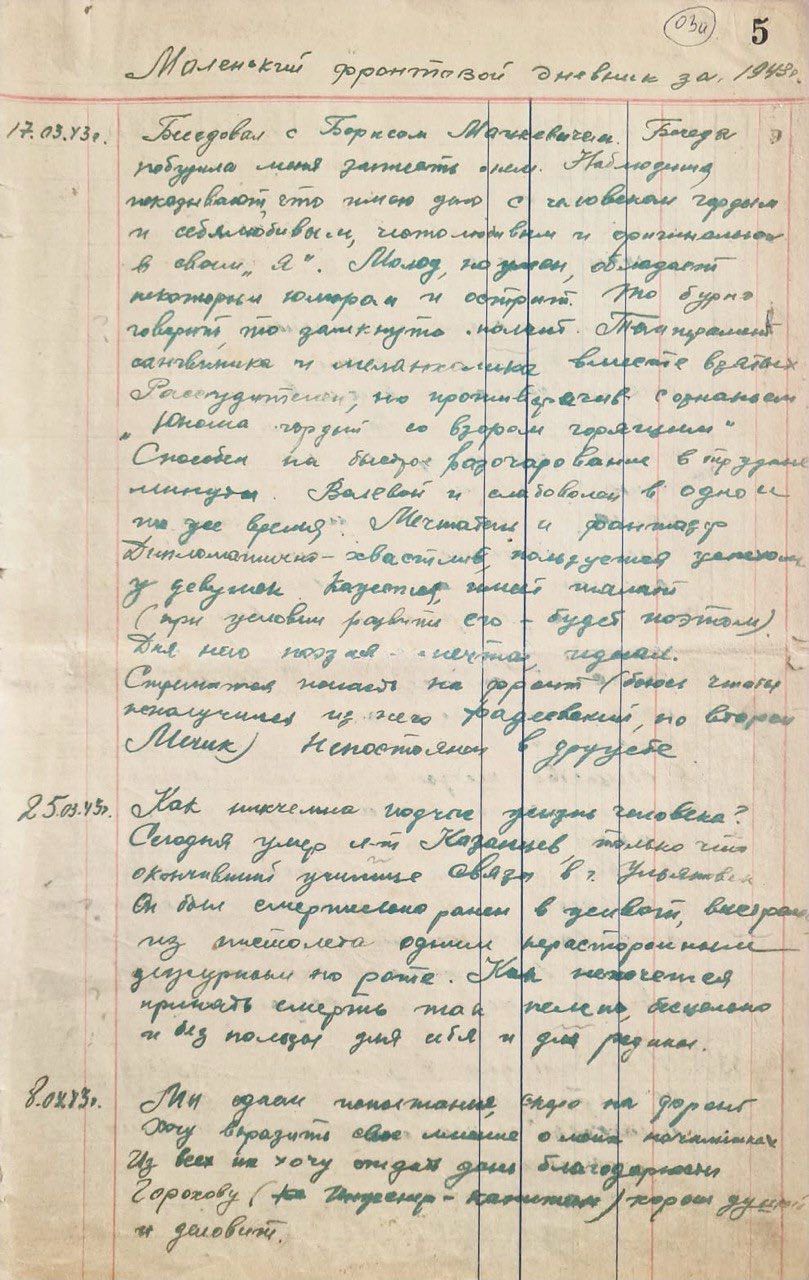 03а 5
Маленький фронтовой дневник за 1943г.
17.03.43г. Беседовал с Борисом Мацкевичем. Беседа
побудила меня записать о нем. Наблюдения
показывают, что имею дело с человеком гордым
и себялюбивым, честолюбивым и оригинальном
в своем „Я". Молод, но умен, обладает
некоторым юмором и острит. То бурно
говорит, то замкнуто молчит. Темперамент
сангвиника и меланхолика вместе взятых
Рассудителен, но противоречив с сознаньем
„Юноша гордый со взором горящим"
Способен на быстрое разочарование в трудные
минуты. Волевой и слабоволен в одно и
то же время. Мечтатель и фантазер
Дипломатично-хвастлив, пользуется успехом
у девушек. Кажется, имеет талант
(при условии развития его - будет поэтом)
Для него поэзия - мечта, идеал.
Стремится попасть на фронт (боюсь чтобы
неполучился из него фадеевский, но второй
Мечик) Непостоянен в дружбе
25.03.43г. Как никчемна подчас жизнь человека?
Сегодня умер л-т Казанцев, только что
окончивший училище связи в г. Ульяновск
Он был смертельно ранен в живот, выстрелом
из пистолета одним нерасторопным
дежурным по роте. Как нехочется
принять смерть так нелепо, бесцельно
и без пользы для себя и для родины.
8.04.43г. Мы сдаем испытания, скоро на фронт
Хочу выразить свое мнение о моих начальниках
Из всех их хочу отдать дань благодарности
Горохову (инженер-капитан) хорош душой
и деловит.